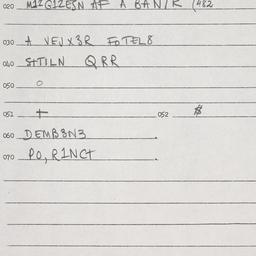 020 M1ZG1ZESN AF A BANK (482
030 A VEJX3R FOTEL8
040 S+TILN QRR
050 O
051 + 052 $
060 DEMB3N3 .
070 PO, R1NCT .